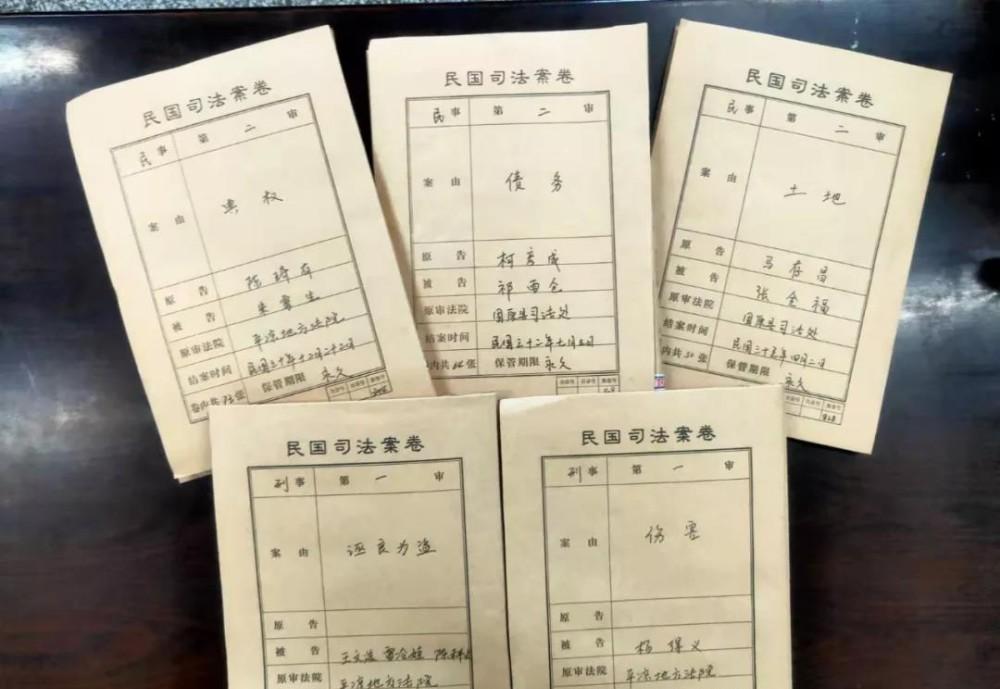 民国司法案卷
民事 第二审
案由 典权
原告 陈
被告
原审法院 平凉地方法院
结案时间 民国三十年十二月二十三日
卷内共73张 保管期限 永久
民国司法案卷
民事 第二审
案由 债务
原告 柯彦成
被告 祁西仓
原审法院 固原县司法处
结案时间 民国三十二年七月五日
内共 张 保管期限 永久
民国司法案卷
民事 第二审
案由 土地
原告 马存昌
被告 张全福
原审法院 固原县司法处
结案时间 民国二十五年四月二日
内共 张 保管期限 永久
民国司法案卷
刑事 第一审
案由 诬良为盗
原告
被告 王文 陈
原审法院 平凉地方法院
民国司法案卷
刑事 第一审
案由 伤害
原告
被告 杨保义
原审法院 平凉地方法院